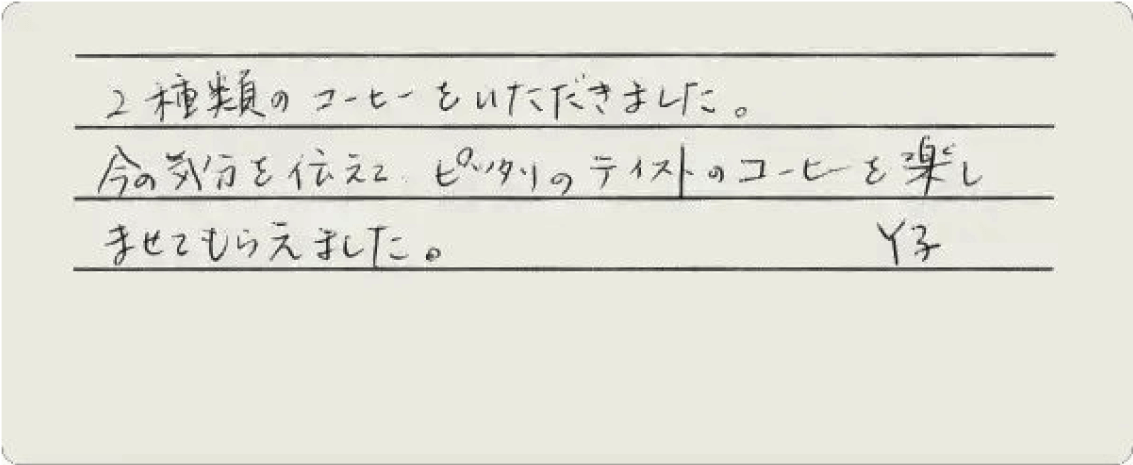 2種類のコーヒーをいただきました。
今の気分を伝えて、ピッタリのテイストのコーヒーを楽し
ませてもらえました。 Y子